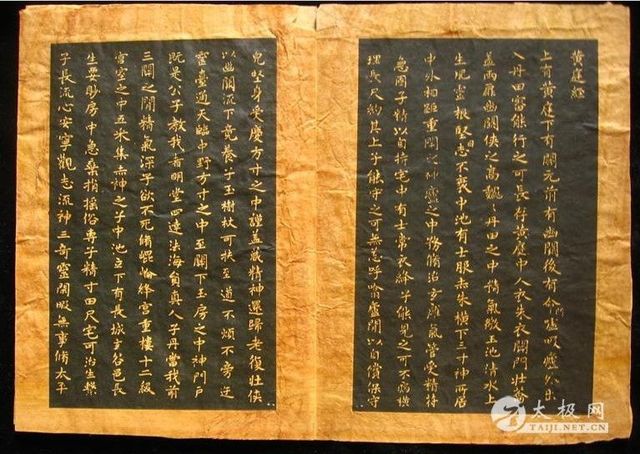 黄庭經
上有黄庭下有關元前有幽闕後有命門噓吸廬外出
入丹田審能行之可長存黄庭中人衣朱衣關門壯籥
蓋兩扉幽闕俠之高巍巍丹田之中精氣微玉池清水上
生肥靈根堅志不衰中池有士服赤朱橫下三寸神所居
中外相距重閇之神廬之中務脩治玄廱氣管受精符
急固子精以自持宅中有士常衣絳子能見之可不病橫
理長尺約其上子能守之可無恙呼噏廬間以自償保守
皃堅身受慶方寸之中謹蓋藏精神還歸老復壯俠
以幽闕流下竟養子玉樹杖可扶至道不煩不旁迕
靈臺通天臨中野方寸之中至關下玉房之中神門戶
既是公子教我者明堂四達法海員真人子丹當我前
三關之間精氣深子欲不死脩崐崘絳宮重樓十二級
宮室之中五采集赤神之子中池立下有長城玄谷邑長
生要眇房中急棄捐搖俗專子精寸田尺宅可治生繫
子長流心安寧觀志流神三奇靈閑暇無事脩太平
太极网
TAIJI.NET.CN